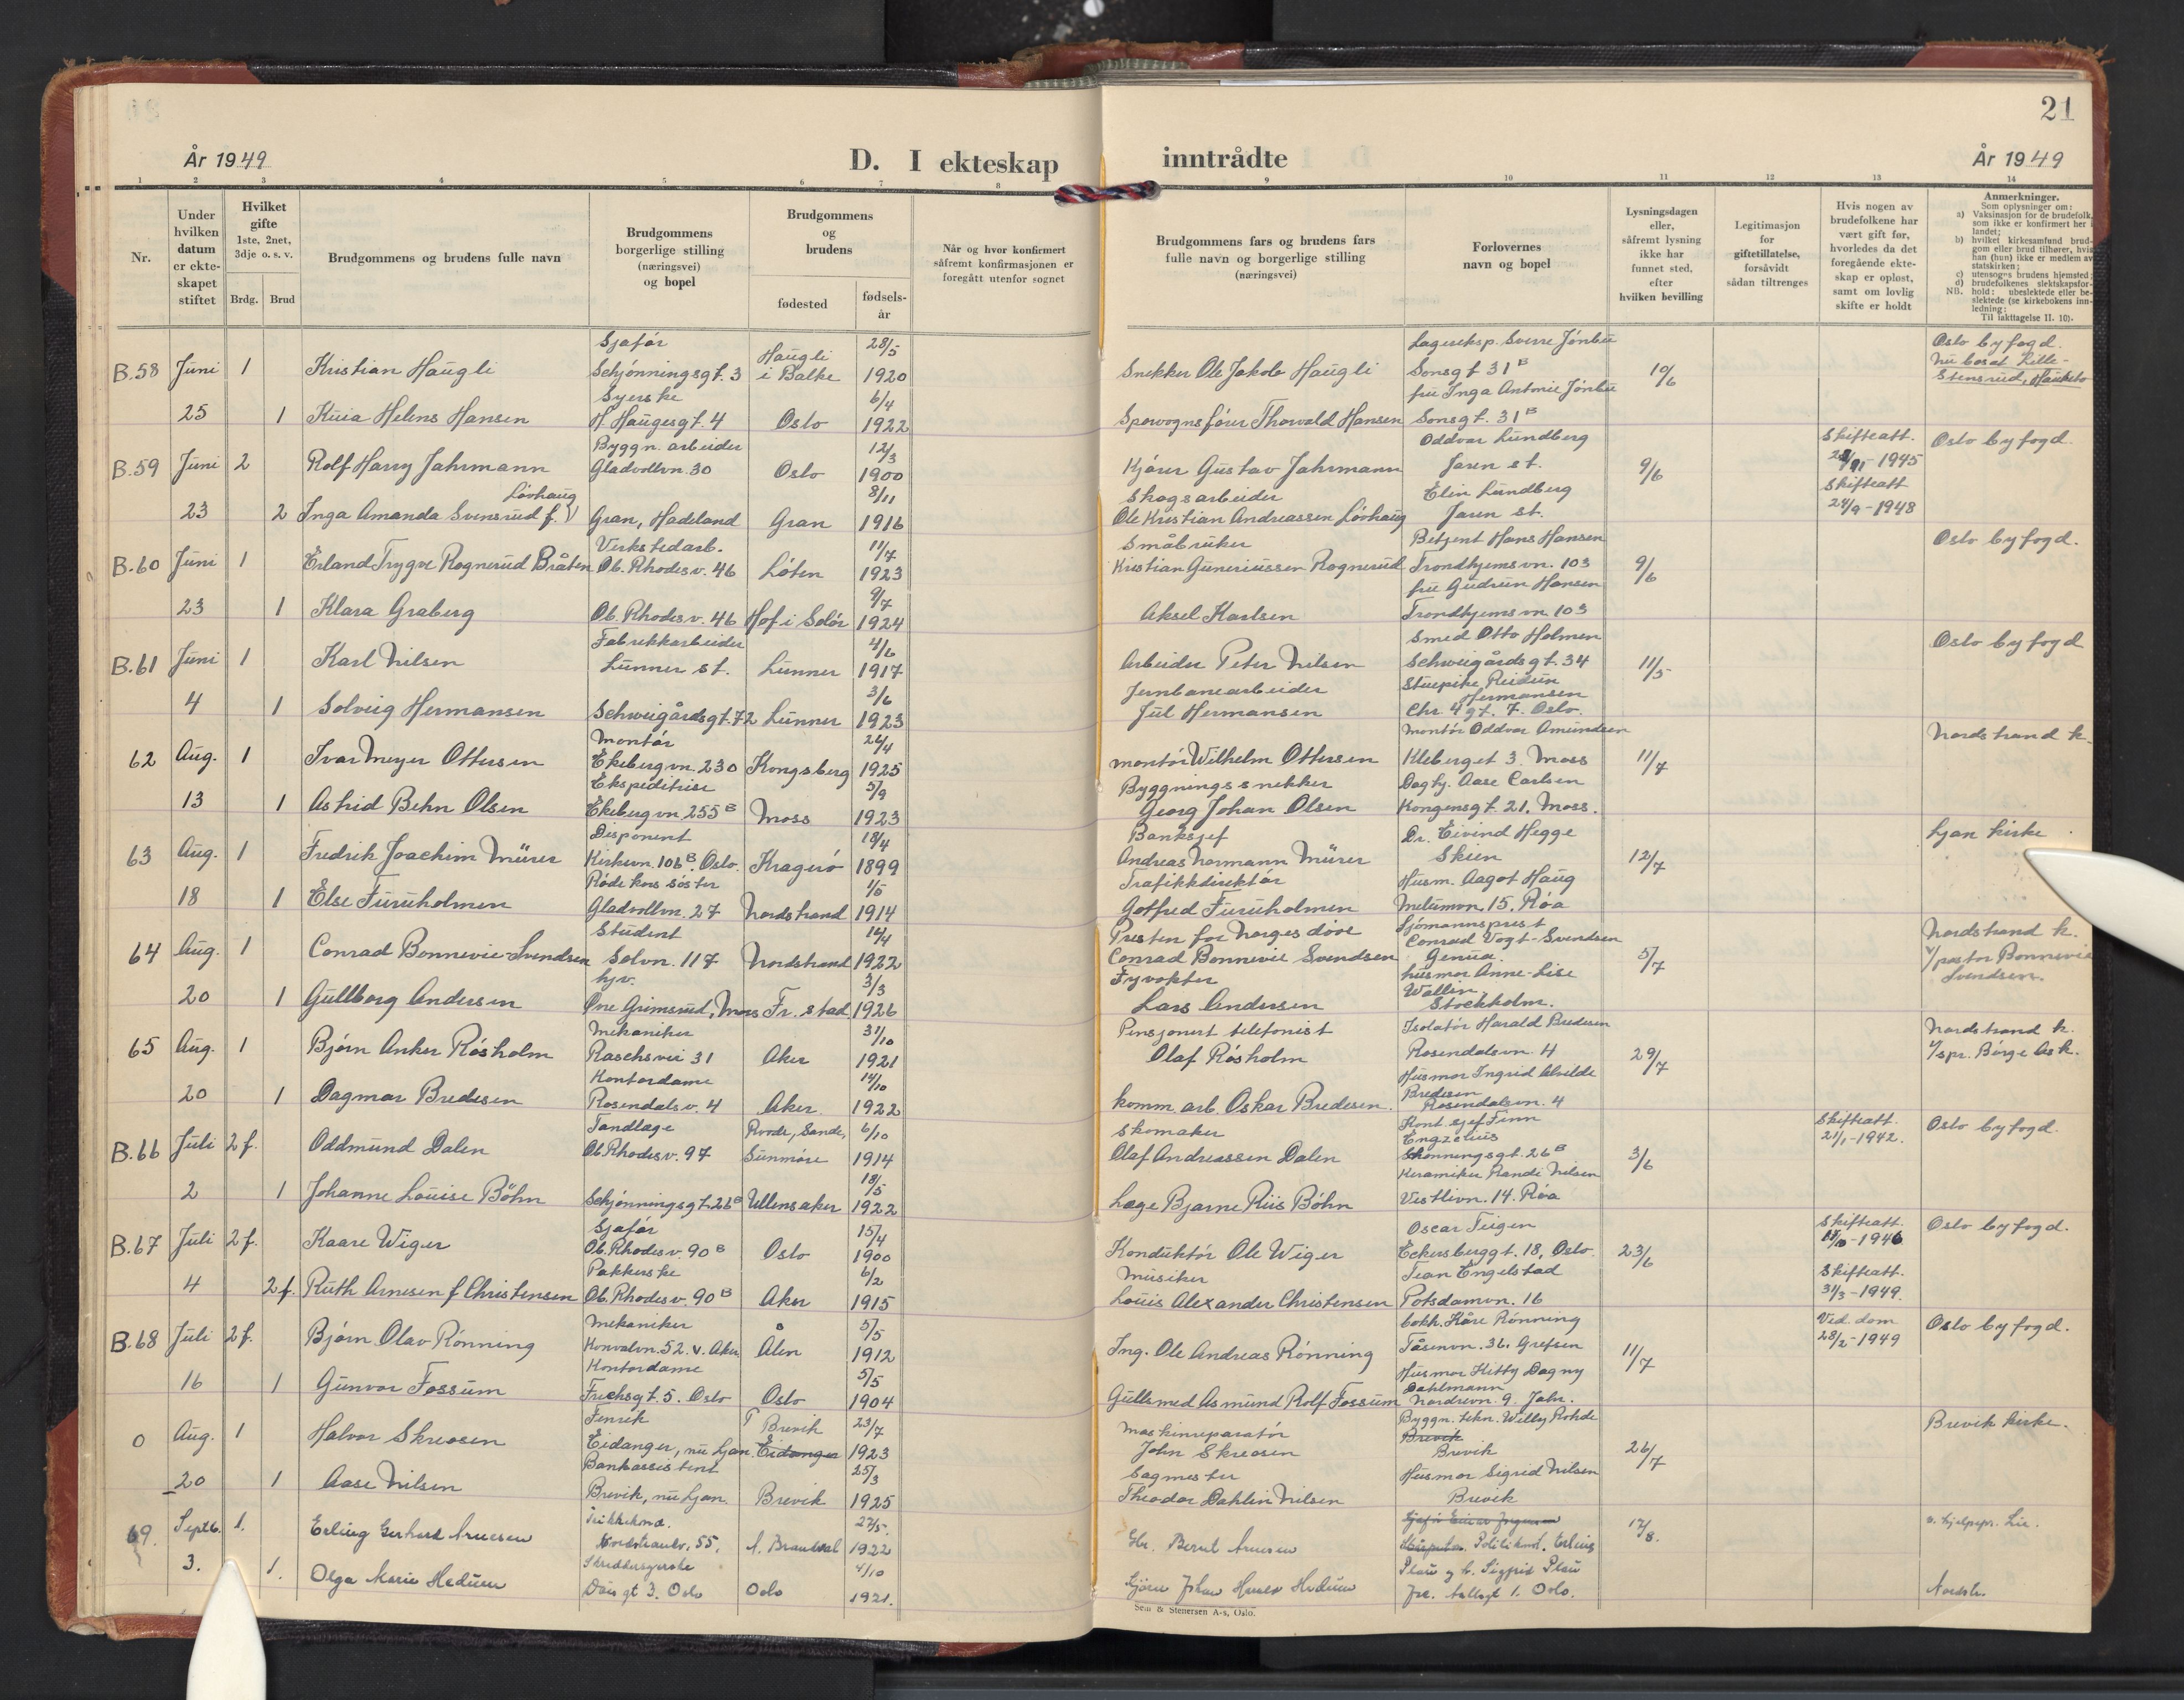 21
År 1949
D. I ekteskap inntrådte
År 1949
1 2 3 4 5 6 7 8 9 10 11 12 13 14
Nr.
Under hvilken datum er ekte-skapet stiftet
Hvilket gifte 1ste, 2net, 3dje o. s. v.
Brdg. Brud
Brudgommens og brudens fulle navn
Brudgommens borgerlige stilling (næringsvei) og bopel
Brudgommens og brudens
fødested
fødsels-år
Når og hvor konfirmert såfremt konfirmasjonen er foregått utenfor sognet
Brudgommens fars og brudens fars fulle navn og borgerlige stilling (næringsvei)
Forlovernes navn og bopel
Lysningsdagen eller, såfremt lysning ikke har funnet sted, efter hvilken bevilling
Legitimasjon for giftetillatelse, forsåvidt sådan tiltrenges
Hvis nogen av brudefolkene har vært gift før, hvorledes da det foregående ekte-skap er opløst, samt om lovlig skifte er holdt
Anmerkninger.
Som oplysninger om:
a) Vaksinasjon for de brudefolk, som ikke er konfirmert her i landet;
b) hvilket kirkesamfund brud-gom eller brud tilhører, hvis han (hun) ikke er medlem av statskirken;
c) utensogns brudens hjemsted;
d) brudefolkenes slektskapsfor-hold: ubeslektede eller be-slektede (se kirkebokens inn-ledning:
NB.
Til iakttagelse II. 10).
B.58 Juni 1 Kristian Haugli Sjåfør Schjønningsgt. 3 Haugli i Balke 28/5 1920 Snekker Ole Jakob Haugli Lagereksp. Sverre Jónbu Sonsgt 31 B 10/6 Oslo byfogd. nu bosat Lille-Stensrud, Hauketo
25 1 Kuia Helens Hansen Syerske H. Haugesgt. 4 Oslo 6/4 1922 Sporvognsfører Thorvald Hansen fru Inga Antonie Jónbu Sonsgt. 31 B
B.59 Juni 2 Rolf Harry Jahrmann Byggn. arbeider Gladvollvn. 30 Oslo 12/3 1900 Kjører Gustav Jahrmann Oddvar Lundberg Jaren st. 9/6 Skifteatt. 1945 Oslo byfogd.
23 2 Inga Amanda Svensrud f. Lövhaug Gran, Hadeland Gran 8/11 1916 Skogsarbeider Ole Kristian Andreassen Lövhaug Elin Lundberg Jaren st. Skifteatt 24/9-1948
B.60 Juni 1 Erland Trygve Rognerud Bråten Verkstedarb. Ob. Rhodesv. 46 Löten 11/7 1923 Småbruker Kristian Guneriussen Rognerud Betjent Hans Hansen Trondhjemsvn. 103 9/6 Oslo byfogd.
23 1 Klara Graberg Ob. Rhodesv. 46 Hof i Solör 9/7 1924 Aksel Karlsen fru Gudrun Hansen Trondhjemsvn 103
B.61 Juni 1 Karl Nilsen Fabrikkarbeider Lunner st. Lunner 4/6 1917 Arbeider Peter Nilsen Smed Otto Holmen Schweigårdsgt. 34 11/5 Oslo byfogd
4 1 Solveig Hermansen Schweigårdsgt. 72 Lunner 3/6 1923 Jernbanearbeider Jul Hermansen Stuepike Reidun Hermansen Chr. 4 gt. 7. Oslo.
62 Aug. 1 Ivar Meyer Ottersen Montör Ekebergvn. 230 Kongsberg 24/4 1925 Montör Wilhelm Ottersen Montör Oddvar Amundsen Kleberget 3. Moss 11/7 Nordstrand k.
13 1 Astrid Behn Olsen Ekspeditrise Ekebergvn. 255 B Moss 5/9 1923 Byggningssnekker Georg Johan Olsen Dagby. Aase Carlsen Kongensgt. 21. Moss.
63 Aug. 1 Fredrik Joachim Mürer Disponent Kirkevn. 106 B. Oslo. Kragerö 18/4 1899 Banksjef Andreas Normann Mürer Dr. Eivind Hegge Skien 12/7 Ljan kirke
18 1 Else Furuholmen Röde kors söster Gladvollvn. 27 Nordstrand 1/5 1914 Trafikkdirektör Gotfred Furuholmen Husm. Aagot Haug Melumvn. 15. Röa
64 Aug. 1 Conrad Bonnevie-Svendsen Student Solvn. 117 Nordstrand 14/4 1922 Presten for Norges döve Conrad Bonnevie Svendsen Sjömannsprest Conrad Vogt-Svendsen Genua. 5/7 Nordstrand k. v/pastor Bonnevie Svendsen.
20 1 Gullborg Andersen hjv. Övre Grimsrud, Moss Fr. stad 3/3 1926 Fyrvokter Lars Andersen husmor Anne-Lise Wallin. Stockholm.
65 Aug. 1 Björn Anker Rösholm Mekaniker Raschsvei 31 Aker 31/10 1921 Pensjonert telefonist Olaf Rösholm Isolatör Harald Bredesen Rosendalsvn. 4 29/7 Nordstrand k. v/spr. Börge Ask.
20 1 Dagmar Bredesen Kontordame Rosendalsv. 4 Aker 14/10 1922 Komm. arb. Oskar Bredesen. Husmor Ingrid Alvilde Bredesen Rosendalsvn. 4
B.66 Juli 2 f. Oddmund Dalen Tandlæge Ob. Rhodesv. 97 Rovde, Sande, Sunmöre 6/10 1914 Skomaker Olaf Andreassen Dalen Kont. sjef Finn Engzelius Schönningsgt. 26 B 3/6 Skifteatt. 21/1-1942. Oslo byfogd.
2 1 Johanne Louise Böhn Schjønningsgt. 26 B Ullensaker 18/5 1922 Læge Bjarne Riis Böhn Keramiker Randi Nilsen Vestlivn. 14. Röa
B.67 Juli 2 f. Kaare Wiger Sjåför Ob. Rhodesv. 90 B Oslo 15/4 1900 Konduktör Ole Wiger Oscar Teigen Eckersberggt. 18, Oslo. 23/6 Skifteatt. 1946 Oslo byfogd.
4 2 f. Ruth Arnesen f Christensen Pakkerske Ob. Rhodesv. 90 B Aker 6/2 1915 Musiker Louis Alexander Christensen Jean Engelstad Potsdamvn. 16 Skifteatt. 31/3-1949.
B.68 Juli 2 f. Bjørn Olav Rönning Mekaniker Konvalvn. 52. V. Aker Ålen 5/5 1912 Ing. Ole Andreas Rönning bokh. Kåre Rönning Tåsenvn. 36. Grefsen 11/7 Ved dom 28/2-1949 Oslo byfogd.
16 1 Gunvor Fossum Kontordame Fuchsgt. 5. Oslo Oslo 5/5 1904 Gullsmed Asmund Rolf Fossum Husmor Kitty Dagny Dahlmann Nordrevn. 9. Jahr.
0 Aug. 1 Halvor Skreosen Fenrik Eidanger, nu Ljan. Brevik Eidanger 23/7 1923 Maskinreparatör John Skreosen Byggn. tekn. Willy Rohde Brevik Brevik 26/7 Brevik kirke.
20 1 Aase Nilsen Bankassistent Brevik, nu Ljan. Brevik 25/3 1925 Sagmester Theodor Dahlin Nilsen Husmor Sigrid Nilsen Brevik
69. Septb. 1. Erling Gerhard Arnesen Trikkekond. Nordstrandv. 55. Brandval 27/5. 1922 Bernt Arnesen Politikonst. Erling 17/8. v. hjelpepr. Lie.
3. 1. Olga Marie Hedum Skreddersyerske Daas gt 3. Oslo Oslo 4/10 1921. Johan Hedum Sigfrid 1. Oslo. Nordstr.
Sem & Stenersen A-s, Oslo.